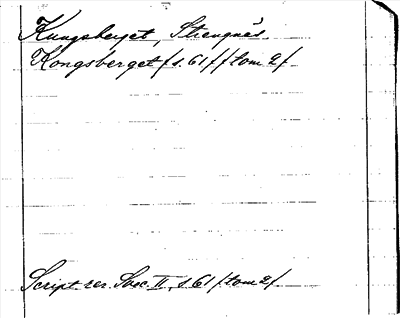 Kungsberget, Strengnäs
Kongsberget /s. 61/ /tom 2/
Script. rer. Svec. II, s. 61 /tom 2/